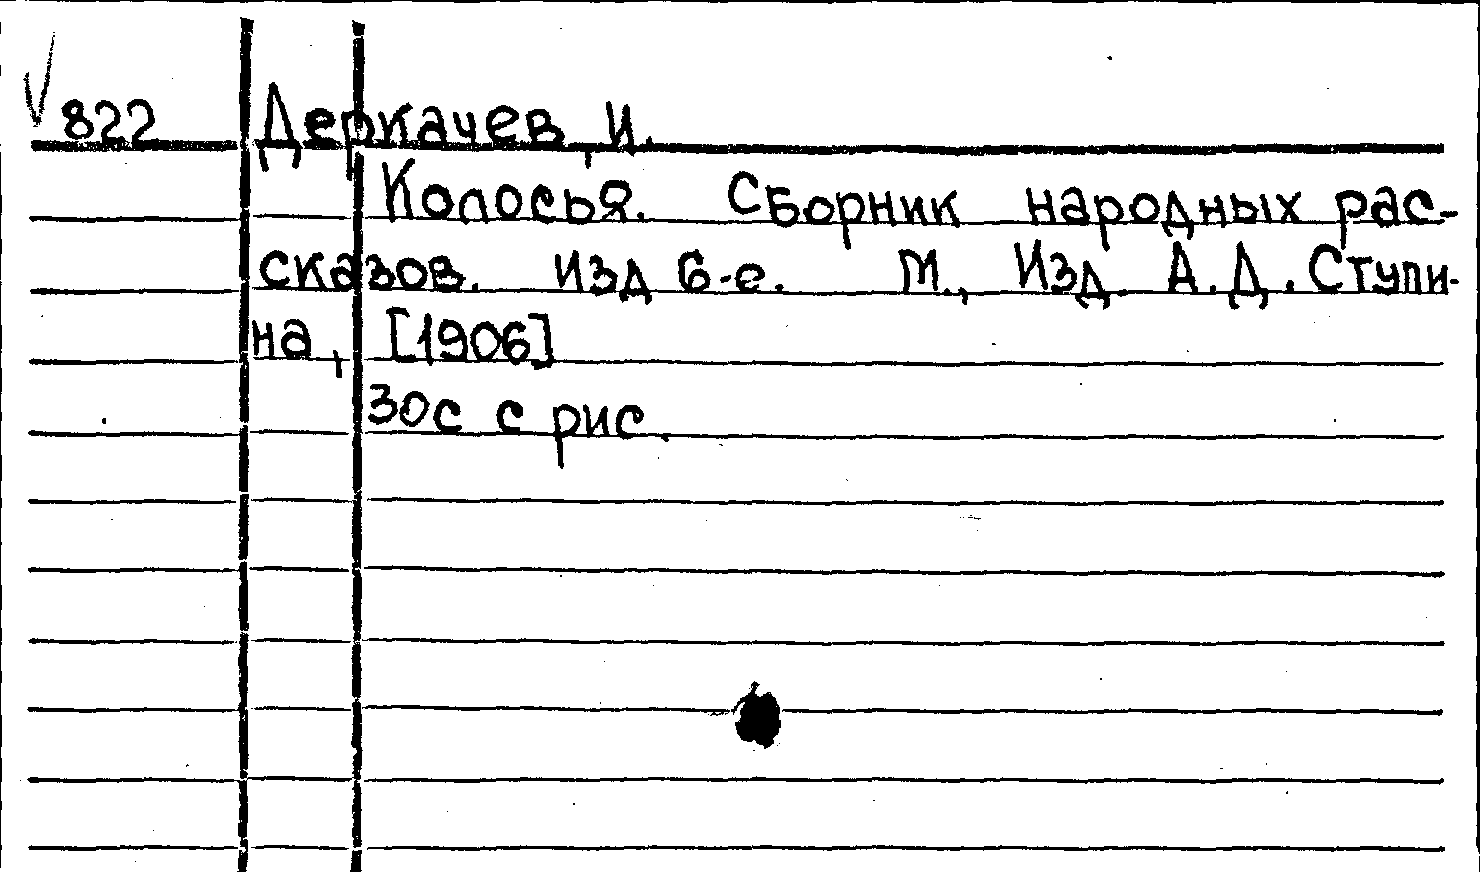 822 Деркачев, И.
Колосья. Сборник народных рас-
сказов. Изд 6-е. М., Изд. А.Д. Ступи-
на, [1906]
30с с рис.